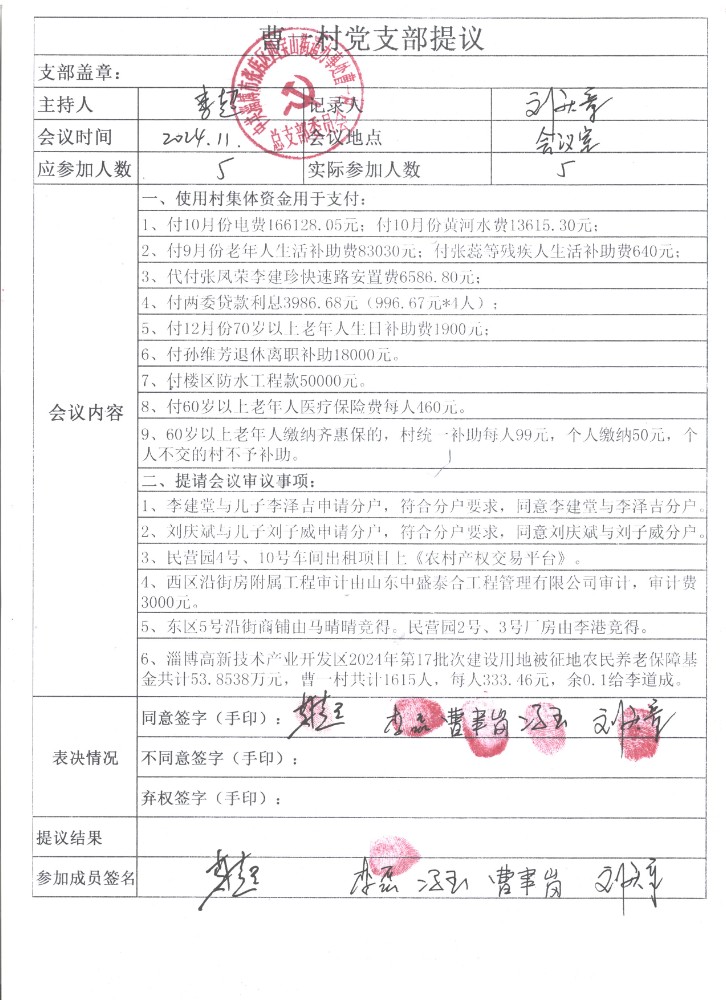 曹一村党支部提议
支部盖章：
主持人 李超 记录人
会议时间 2024.11. 会议地点 会议室
应参加人数 5 实际参加人数 5
会议内容
一、使用村集体资金用于支付：
1、付10月份电费166128.05元；付10月份黄河水费13615.30元；
2、付9月份老年人生活补助费83030元；付张蕊等残疾人生活补助费640元；
3、代付张凤荣李建珍快速路安置费6586.80元；
4、付两委贷款利息3986.68元（996.67元*4人）；
5、付12月份70岁以上老年人生日补助费1900元；
6、付孙维芳退休离职补助18000元。
7、付楼区防水工程款50000元。
8、付60岁以上老年人医疗保险费每人460元。
9、60岁以上老年人缴纳齐惠保的，村统一补助每人99元，个人缴纳50元，个
人不交的村不予补助。
二、提请会议审议事项：
1、李建堂与儿子李泽吉申请分户，符合分户要求，同意李建堂与李泽吉分户。
2、刘庆斌与儿子刘子威申请分户，符合分户要求，同意刘庆斌与刘子威分户。
3、民营园4号、10号车间出租项目上《农村产权交易平台》。
4、西区沿街房附属工程审计由山东中盛泰合工程管理有限公司审计，审计费
3000元。
5、东区5号沿街商铺由马晴晴竞得。民营园2号、3号厂房由李港竞得。
6、淄博高新技术产业开发区2024年第17批次建设用地被征地农民养老保障基
金共计53.8538万元，曹一村共计1615人，每人333.46元，余0.1给李道成。
表决情况
同意签字（手印）： 李磊 曹聿岗 冯玉
不同意签字（手印）：
弃权签字（手印）：
提议结果
参加成员签名 李磊 冯玉 曹聿岗